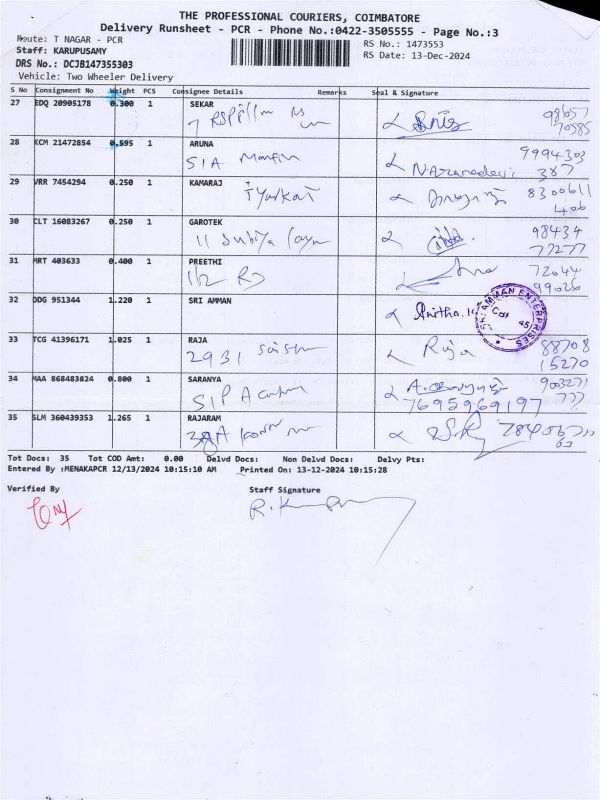 THE PROFESSIONAL COURIERS, COIMBATORE
Delivery Runsheet - PCR - Phone No.:0422-3505555 - Page No.:3
Route: T NAGAR - PCR
RS No.: 1473553
Staff: KARUPUSAMY
RS Date: 13-Dec-2024
DRS No.: DCJB147355303
Vehicle: Two Wheeler Delivery
S No Consignment No Weight PCS Consignee Details Remarks Seal & Signature
27 EDQ 20905178 0.300 1 SEKAR
98657
70585
28 KCM 21472854 0.595 1 ARUNA
9994303
387
29 VRR 7454294 0.250 1 KAMARAJ
8300611
406
30 CLT 16083267 0.250 1 GAROTEK
98434
77277
31 MRT 403633 0.400 1 PREETHI
72044
99026
32 DDG 951344 1.220 1 SRI AMMAN
SRI AMMAN ENTERPRISES
33 TCG 41396171 1.025 1 RAJA
2931
Raja
88708
15270
34 MAA 868483824 0.800 1 SARANYA
903271
777
7695969197
35 SLM 360439353 1.265 1 RAJARAM
Tot Docs: 35 Tot COD Amt: 0.00 Delvd Docs: Non Delvd Docs: Delvy Pts:
Entered By :MENAKAPCR 12/13/2024 10:15:10 AM Printed On: 13-12-2024 10:15:28
Verified By
Staff Signature